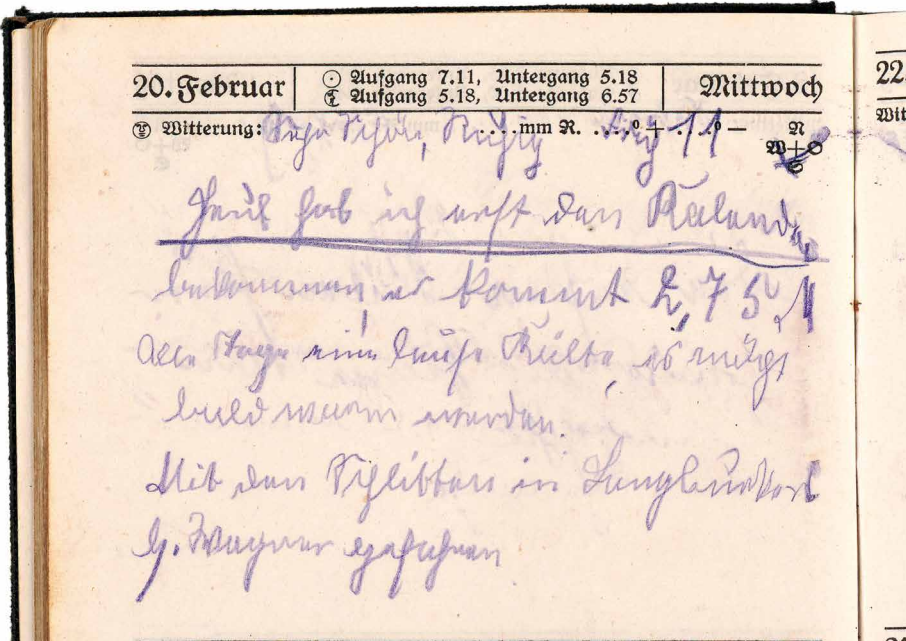 20. Februar
Aufgang 7.11, Untergang 5.18
Aufgang 5.18, Untergang 6.57
Mittwoch
22.
Witterung: Sehr Schön, Ruhig ....mm R. ....° + ....° — N
11 W+O
S
Wit
Heut hab ich erst den Kalender
bekommen, er kommt 2,75 M
Alle Tage eine Kälte, es möge
bald warm werden.
Mit den Schlitten in
H. Wagner gefahren